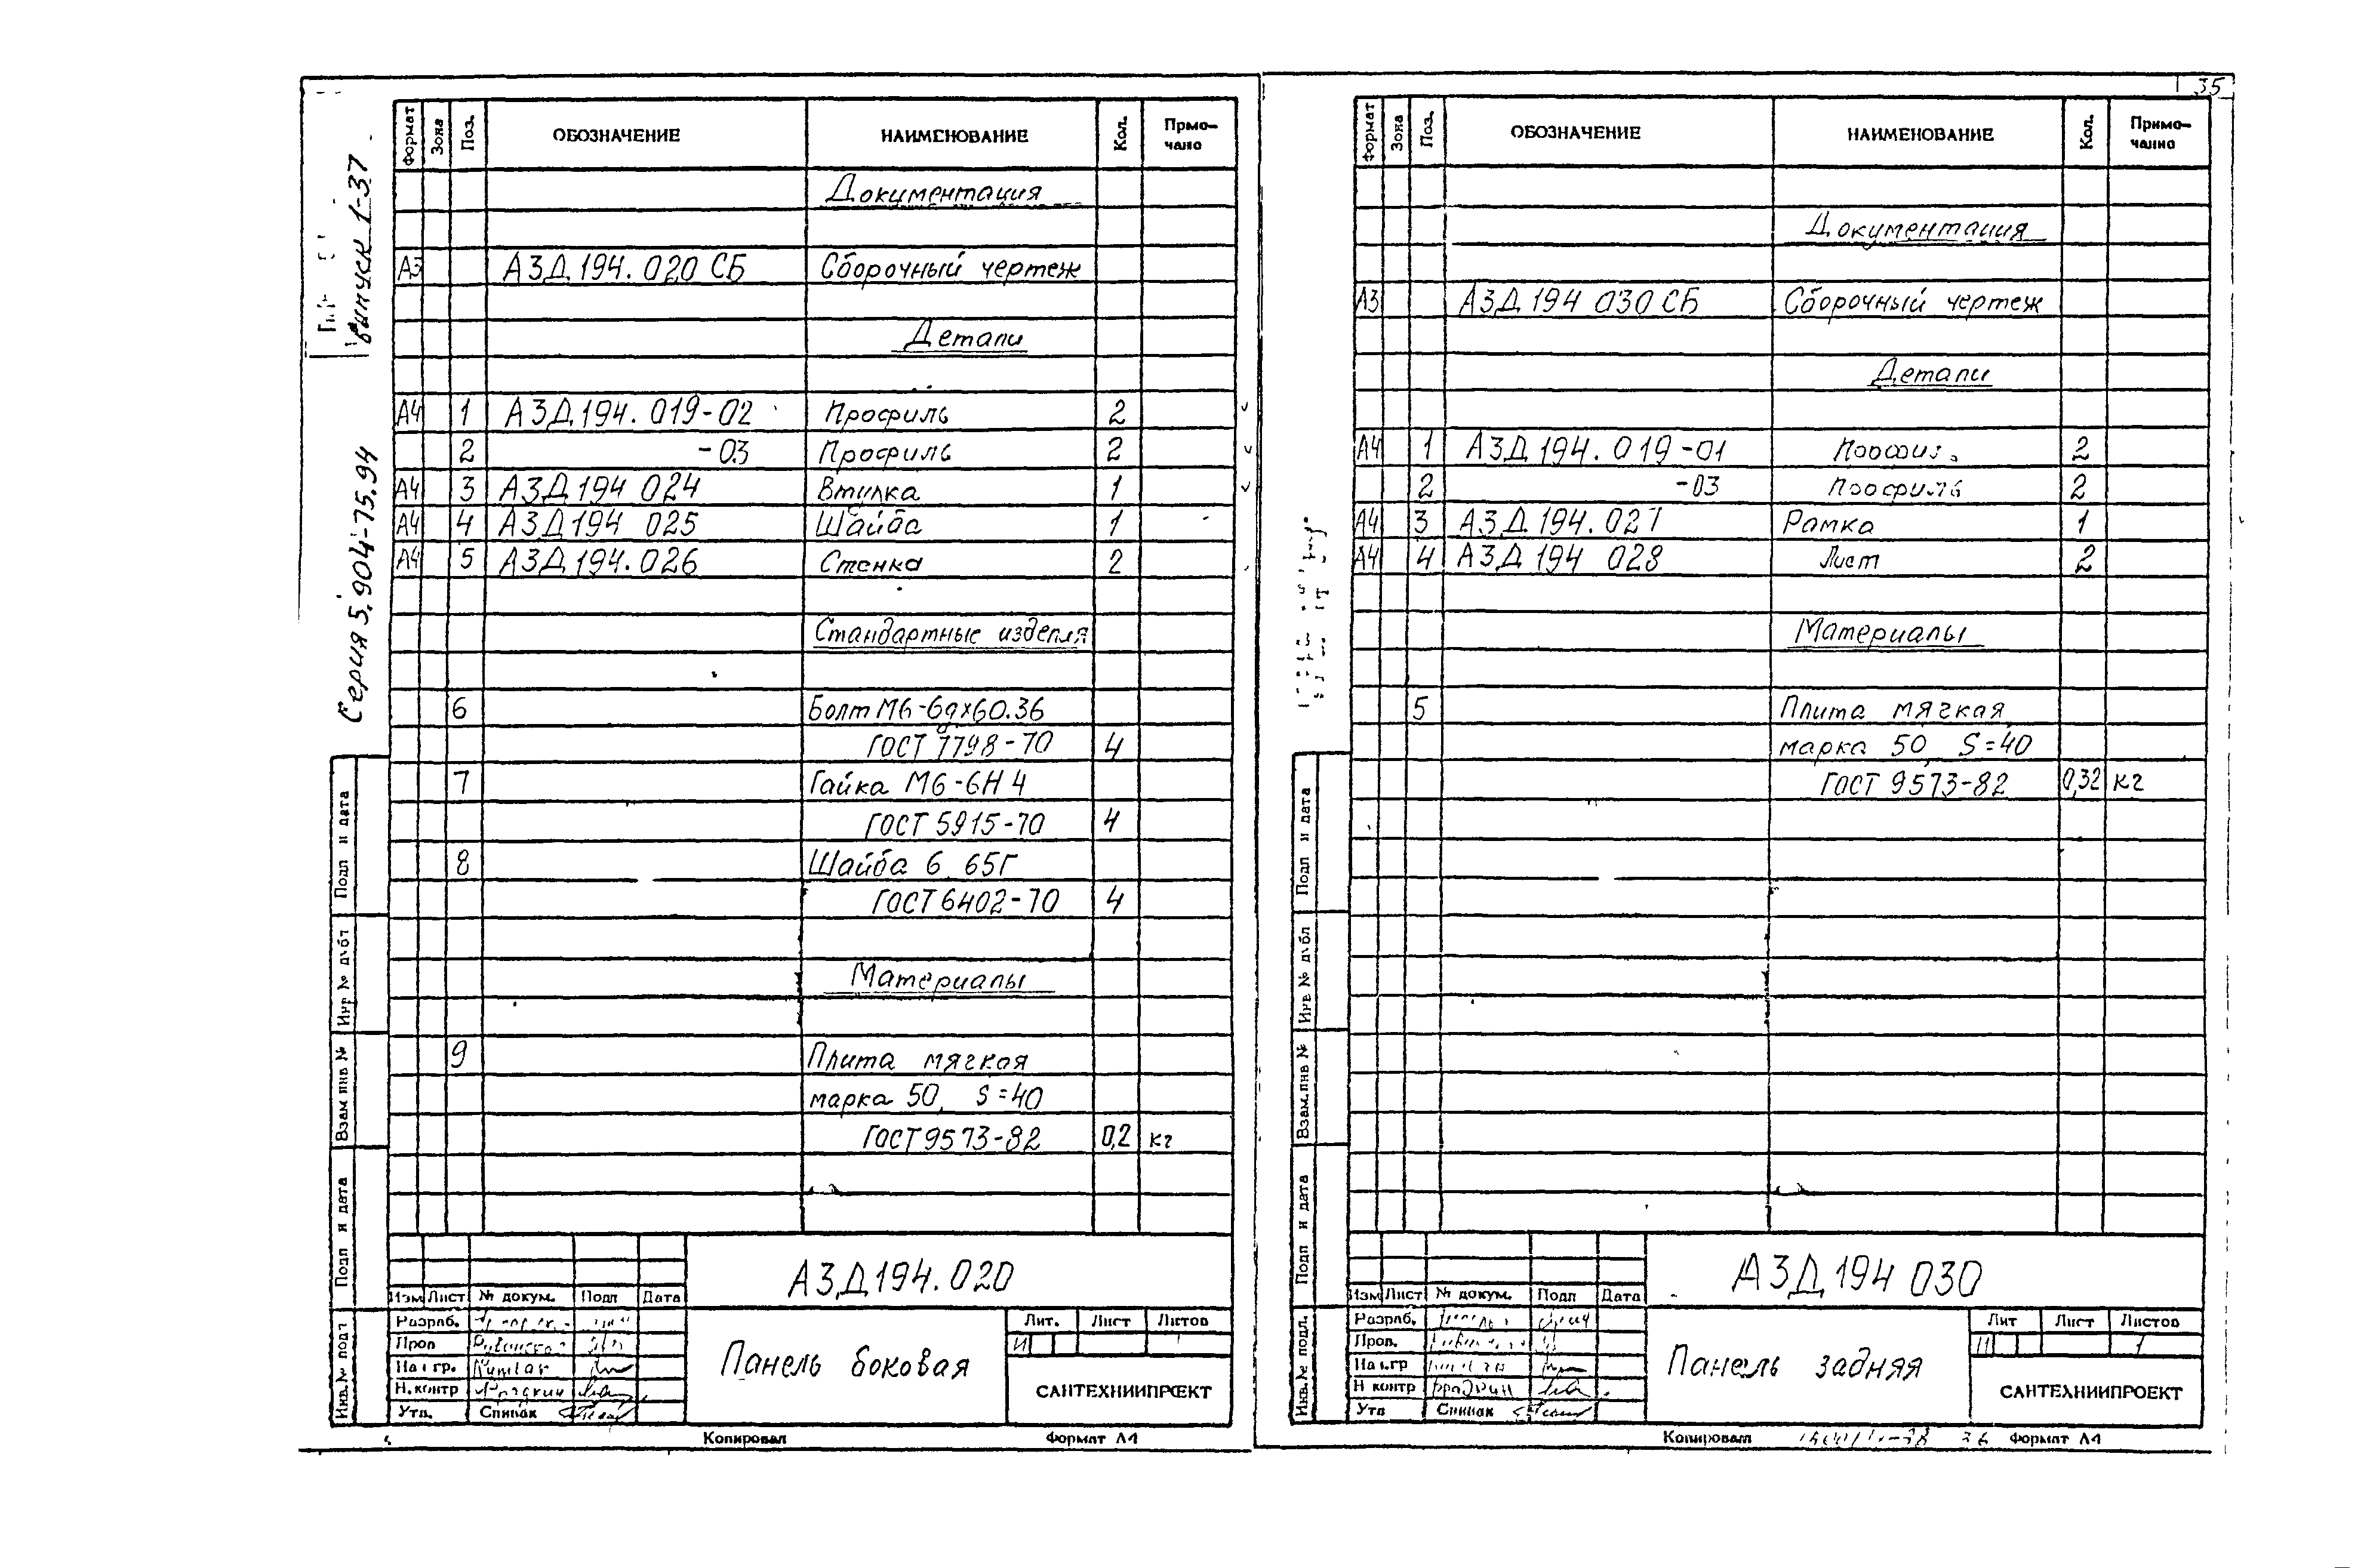 35
Серия 5.904-75.94 Выпуск 1-37
Формат Зона Поз. ОБОЗНАЧЕНИЕ НАИМЕНОВАНИЕ Кол. Приме-
чание
Документация
А3 А3Д 194.020 СБ Сборочный чертеж
Детали
А4 1 А3Д 194.019-02 Профиль 2
2 -03 Профиль 2
А4 3 А3Д 194 024 Втулка 1
А4 4 А3Д 194 025 Шайба 1
А4 5 А3Д 194.026 Стенка 2
Стандартные изделя
6 Болт М6-6gх60.36
ГОСТ 7798-70 4
7 Гайка М6-6Н 4
ГОСТ 5915-70 4
8 Шайба 6 65Г
ГОСТ 6402-70 4
Материалы
9 Плита мягкая
марка 50, S=40
ГОСТ 9573-82 0,2 кг
Подп и дата
Инв № дубл
Взам инв №
Подп и дата
Инв.№ подл
А3Д 194.020
Изм Лист № докум. Подп Дата
Разраб.
Пров
Нач гр.
Н.контр
Утв. Спивак
Панель боковая
Лит. Лист Листов
И 1
САНТЕХНИИПРОЕКТ
Копировал Формат А4
Формат Зона Поз. ОБОЗНАЧЕНИЕ НАИМЕНОВАНИЕ Кол. Приме-
чание
Документация
А3 А3Д 194 030 СБ Сборочный чертеж
Детали
А4 1 А3Д 194.019-01 Профиль 2
2 -03 Профиль 2
А4 3 А3Д 194.027 Рамка 1
А4 4 А3Д 194 028 Лист 2
Материалы
5 Плита мягкая
марка 50, S=40
ГОСТ 9573-82 0,32 кг
Подп и дата
Инв № дубл
Взам.инв №
Подп и дата
Инв.№ подл.
А3Д 194 030
Изм Лист № докум. Подп Дата
Разраб.
Пров.
Нач.гр
Н контр
Утв Спивак
Панель задняя
Лит Лист Листов
И 1
САНТЕХНИИПРОЕКТ
Копировал 36 Формат А4